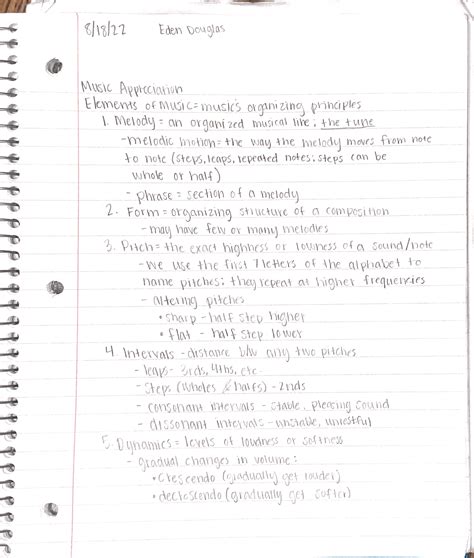 8/18/22 Eden Douglas
Music Appreciation
Elements of Music = music's organizing principles
1. Melody = an organized musical line; the tune
- melodic motion = the way the melody moves from note
to note (steps, leaps, repeated notes; steps can be
whole or half)
- phrase = section of a melody
2. Form = organizing structure of a composition
- may have few or many melodies
3. Pitch = the exact highness or lowness of a sound/note
- we use the first 7 letters of the alphabet to
name pitches; they repeat at higher frequencies
- altering pitches
• sharp - half step higher
• flat - half step lower
4. Intervals - distance b/w any two pitches
- leaps - 3rds, 4ths, etc
- steps (wholes & halfs) - 2nds
- consonant intervals - stable, pleasing sound
- dissonant intervals - unstable, unrestful
5. Dynamics = levels of loudness or softness
- gradual changes in volume:
• crescendo (gradually get louder)
• decrescendo (gradually get softer)